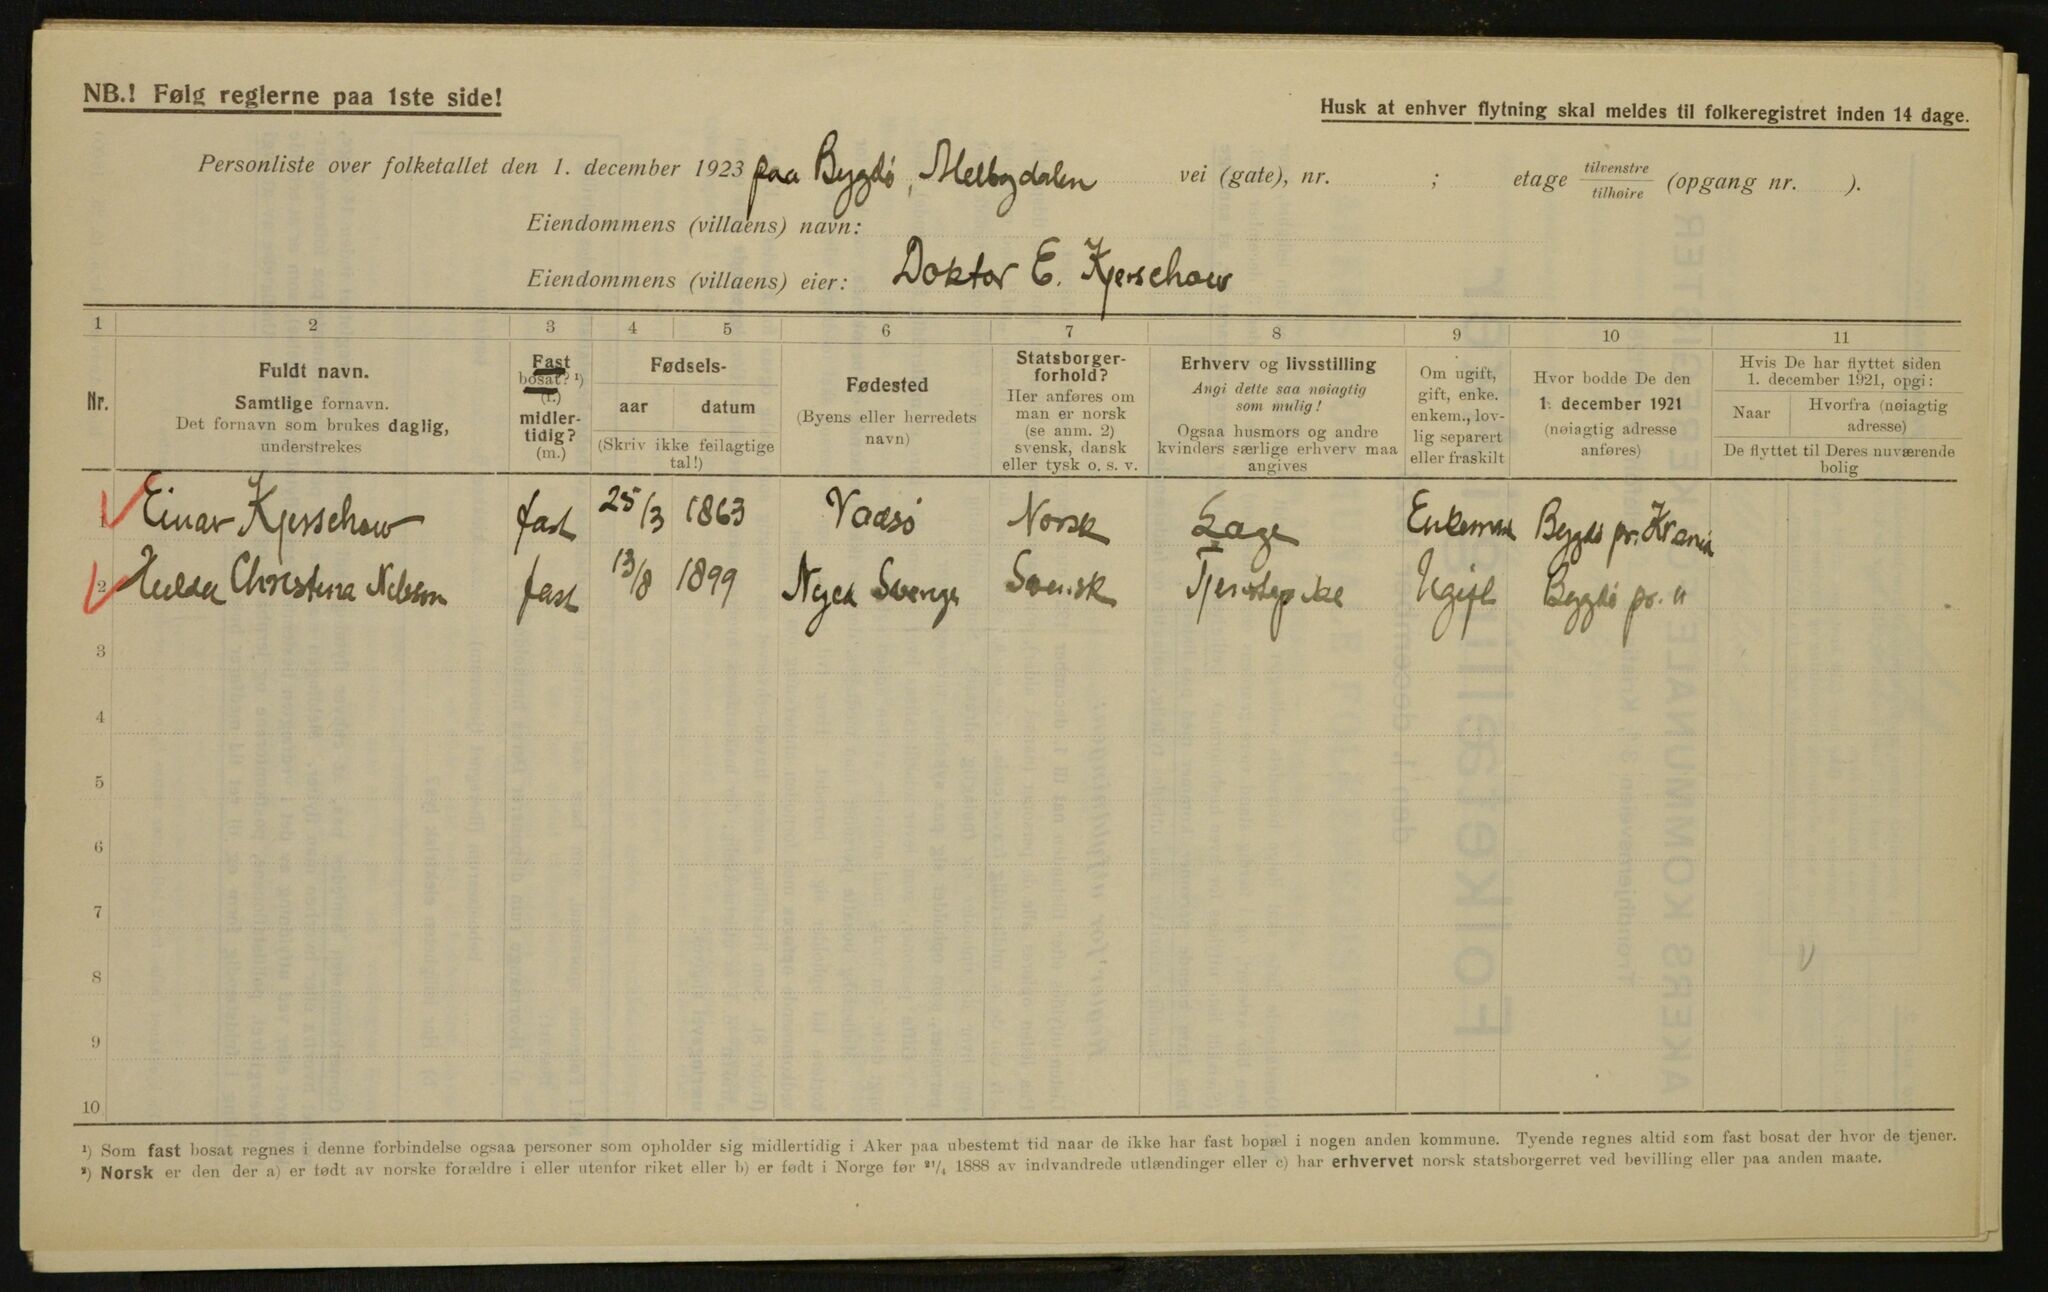 NB.! Følg reglerne paa 1ste side!
Husk at enhver flytning skal meldes til folkeregistret inden 14 dage.
Personliste over folketallet den 1. december 1923 paa Bygdø, Melbydalen vei (gate), nr. ; etage tilvenstre tilhøire (opgang nr. ).
Eiendommens (villaens) navn:
Eiendommens (villaens) eier: Doktor E. Kjerschow
1 2 3 4 5 6 7 8 9 10 11
Nr.
Fuldt navn.
Samtlige fornavn.
Det fornavn som brukes daglig,
understrekes
Fast
bosat? ¹)
(f.)
midler-
tidig?
(m.)
Fødsels-
aar datum
(Skriv ikke feilagtige
tal!)
Fødested
(Byens eller herredets
navn)
Statsborger-
forhold?
Her anføres om
man er norsk
(se anm. 2)
svensk, dansk
eller tysk o. s. v.
Erhverv og livsstilling
Angi dette saa nøiagtig
som mulig!
Ogsaa husmors og andre
kvinders særlige erhverv maa
angives
Om ugift,
gift, enke.
enkem., lov-
lig separert
eller fraskilt
Hvor bodde De den
1. december 1921
(nøiagtig adresse
anføres)
Hvis De har flyttet siden
1. december 1921, opgi:
Naar Hvorfra (nøiagtig
adresse)
De flyttet til Deres nuværende
bolig
1 Einar Kjerschow fast 25/3 1863 Vadsø Norsk Læge Enkemand Bygdø pr. Krania
2 Hulda Christina Nelson fast 13/8 1899 Sverige Svensk Tjenstepike Ugift Bygdø pr. "
3
4
5
6
7
8
9
10
¹) Som fast bosat regnes i denne forbindelse ogsaa personer som opholder sig midlertidig i Aker paa ubestemt tid naar de ikke har fast bopæl i nogen anden kommune. Tyende regnes altid som fast bosat der hvor de tjener.
²) Norsk er den der a) er født av norske forældre i eller utenfor riket eller b) er født i Norge før ²¹/₄ 1888 av indvandrede utlændinger eller c) har erhvervet norsk statsborgerret ved bevilling eller paa anden maate.